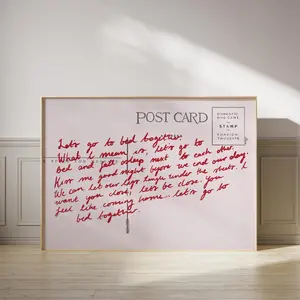 POST CARD
DOMESTIC
ONE CENT
STAMP
FOREIGN
Let's go to bed together.
What I mean is, let's go to
bed and fall asleep next to each other.
Kiss me good night before we end our day.
We can let our legs tangle under the sheets. I
want you close, let's be close. You
feel like coming home. Let's go to
bed together.